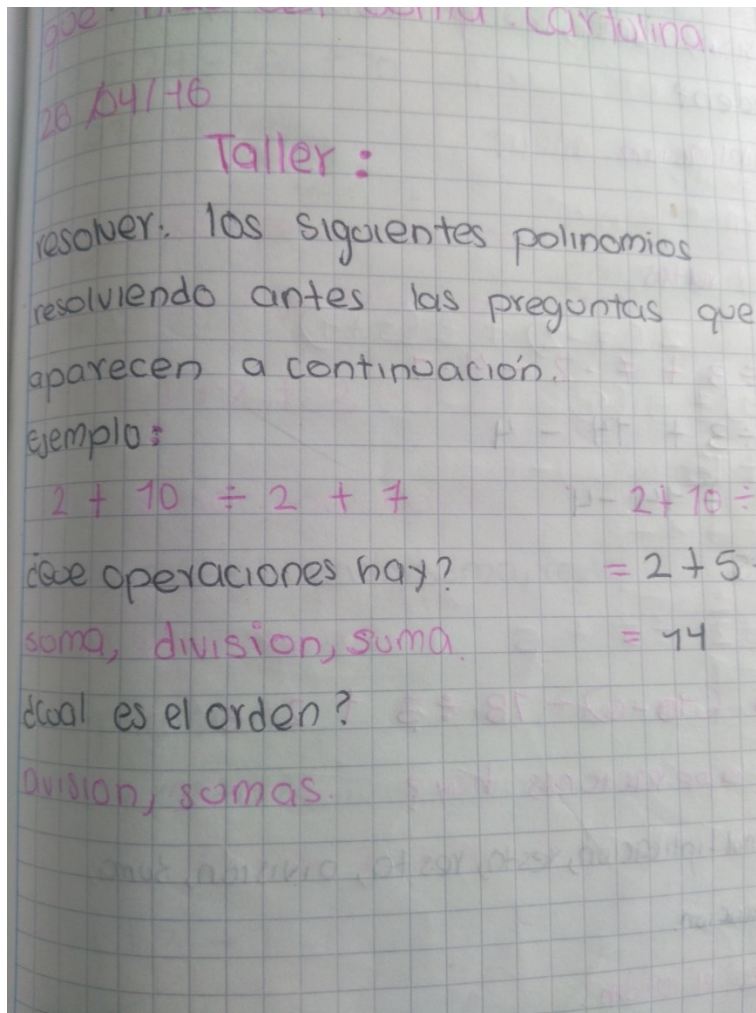 que cartulina.
26/04/16
Taller:
resolver. los siguientes polinomios
resolviendo antes las preguntas que
aparecen a continuación.
ejemplo:
2 + 10 ÷ 2 + 7
2 + 10 ÷
¿Que operaciones hay?
= 2 + 5
suma, division, suma.
= 14
¿cual es el orden?
Division, sumas.